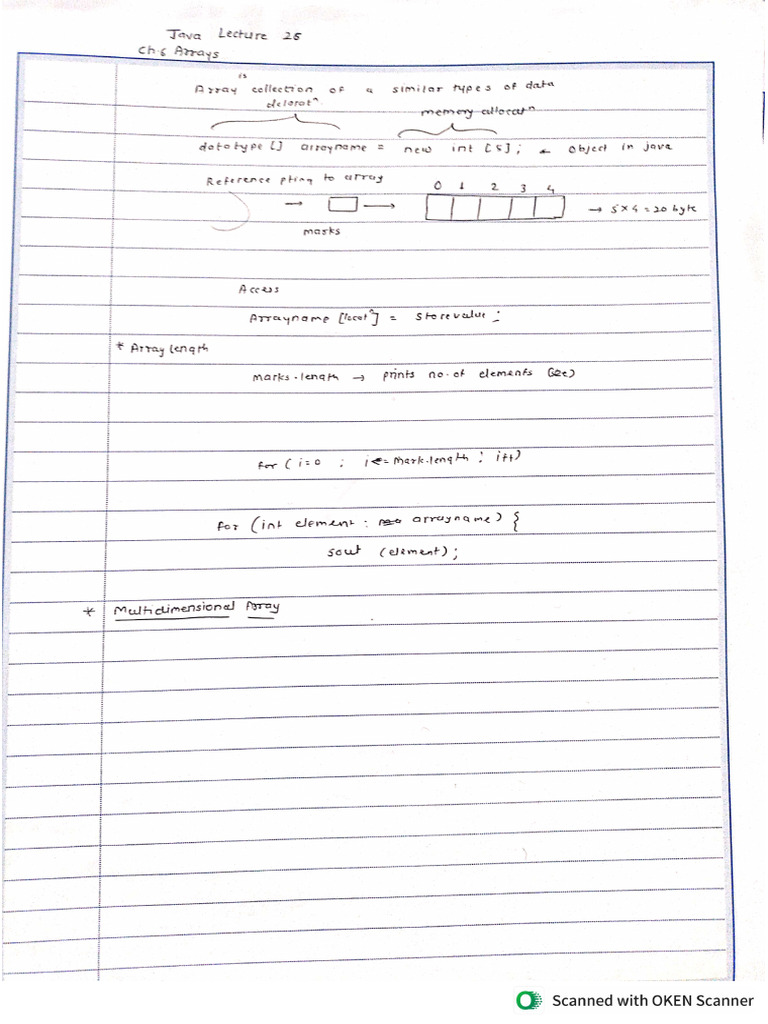 Java Lecture 25
Ch.6 Arrays
is
Array collection of a similar types of data
declaratⁿ memory allocatⁿ
datatype [] arrayname = new int [5]; ← Object in java
Reference pting to array
0 1 2 3 4
→ → → 5 × 4 = 20 byte
marks
Access
Arrayname [locatⁿ] = store value ;
* Array length
marks.length → prints no. of elements
for ( i=0 ; i<= Mark.length ; i++)
for (int element : arrayname) {
sout (element);
* Multidimensional Array
Scanned with OKEN Scanner